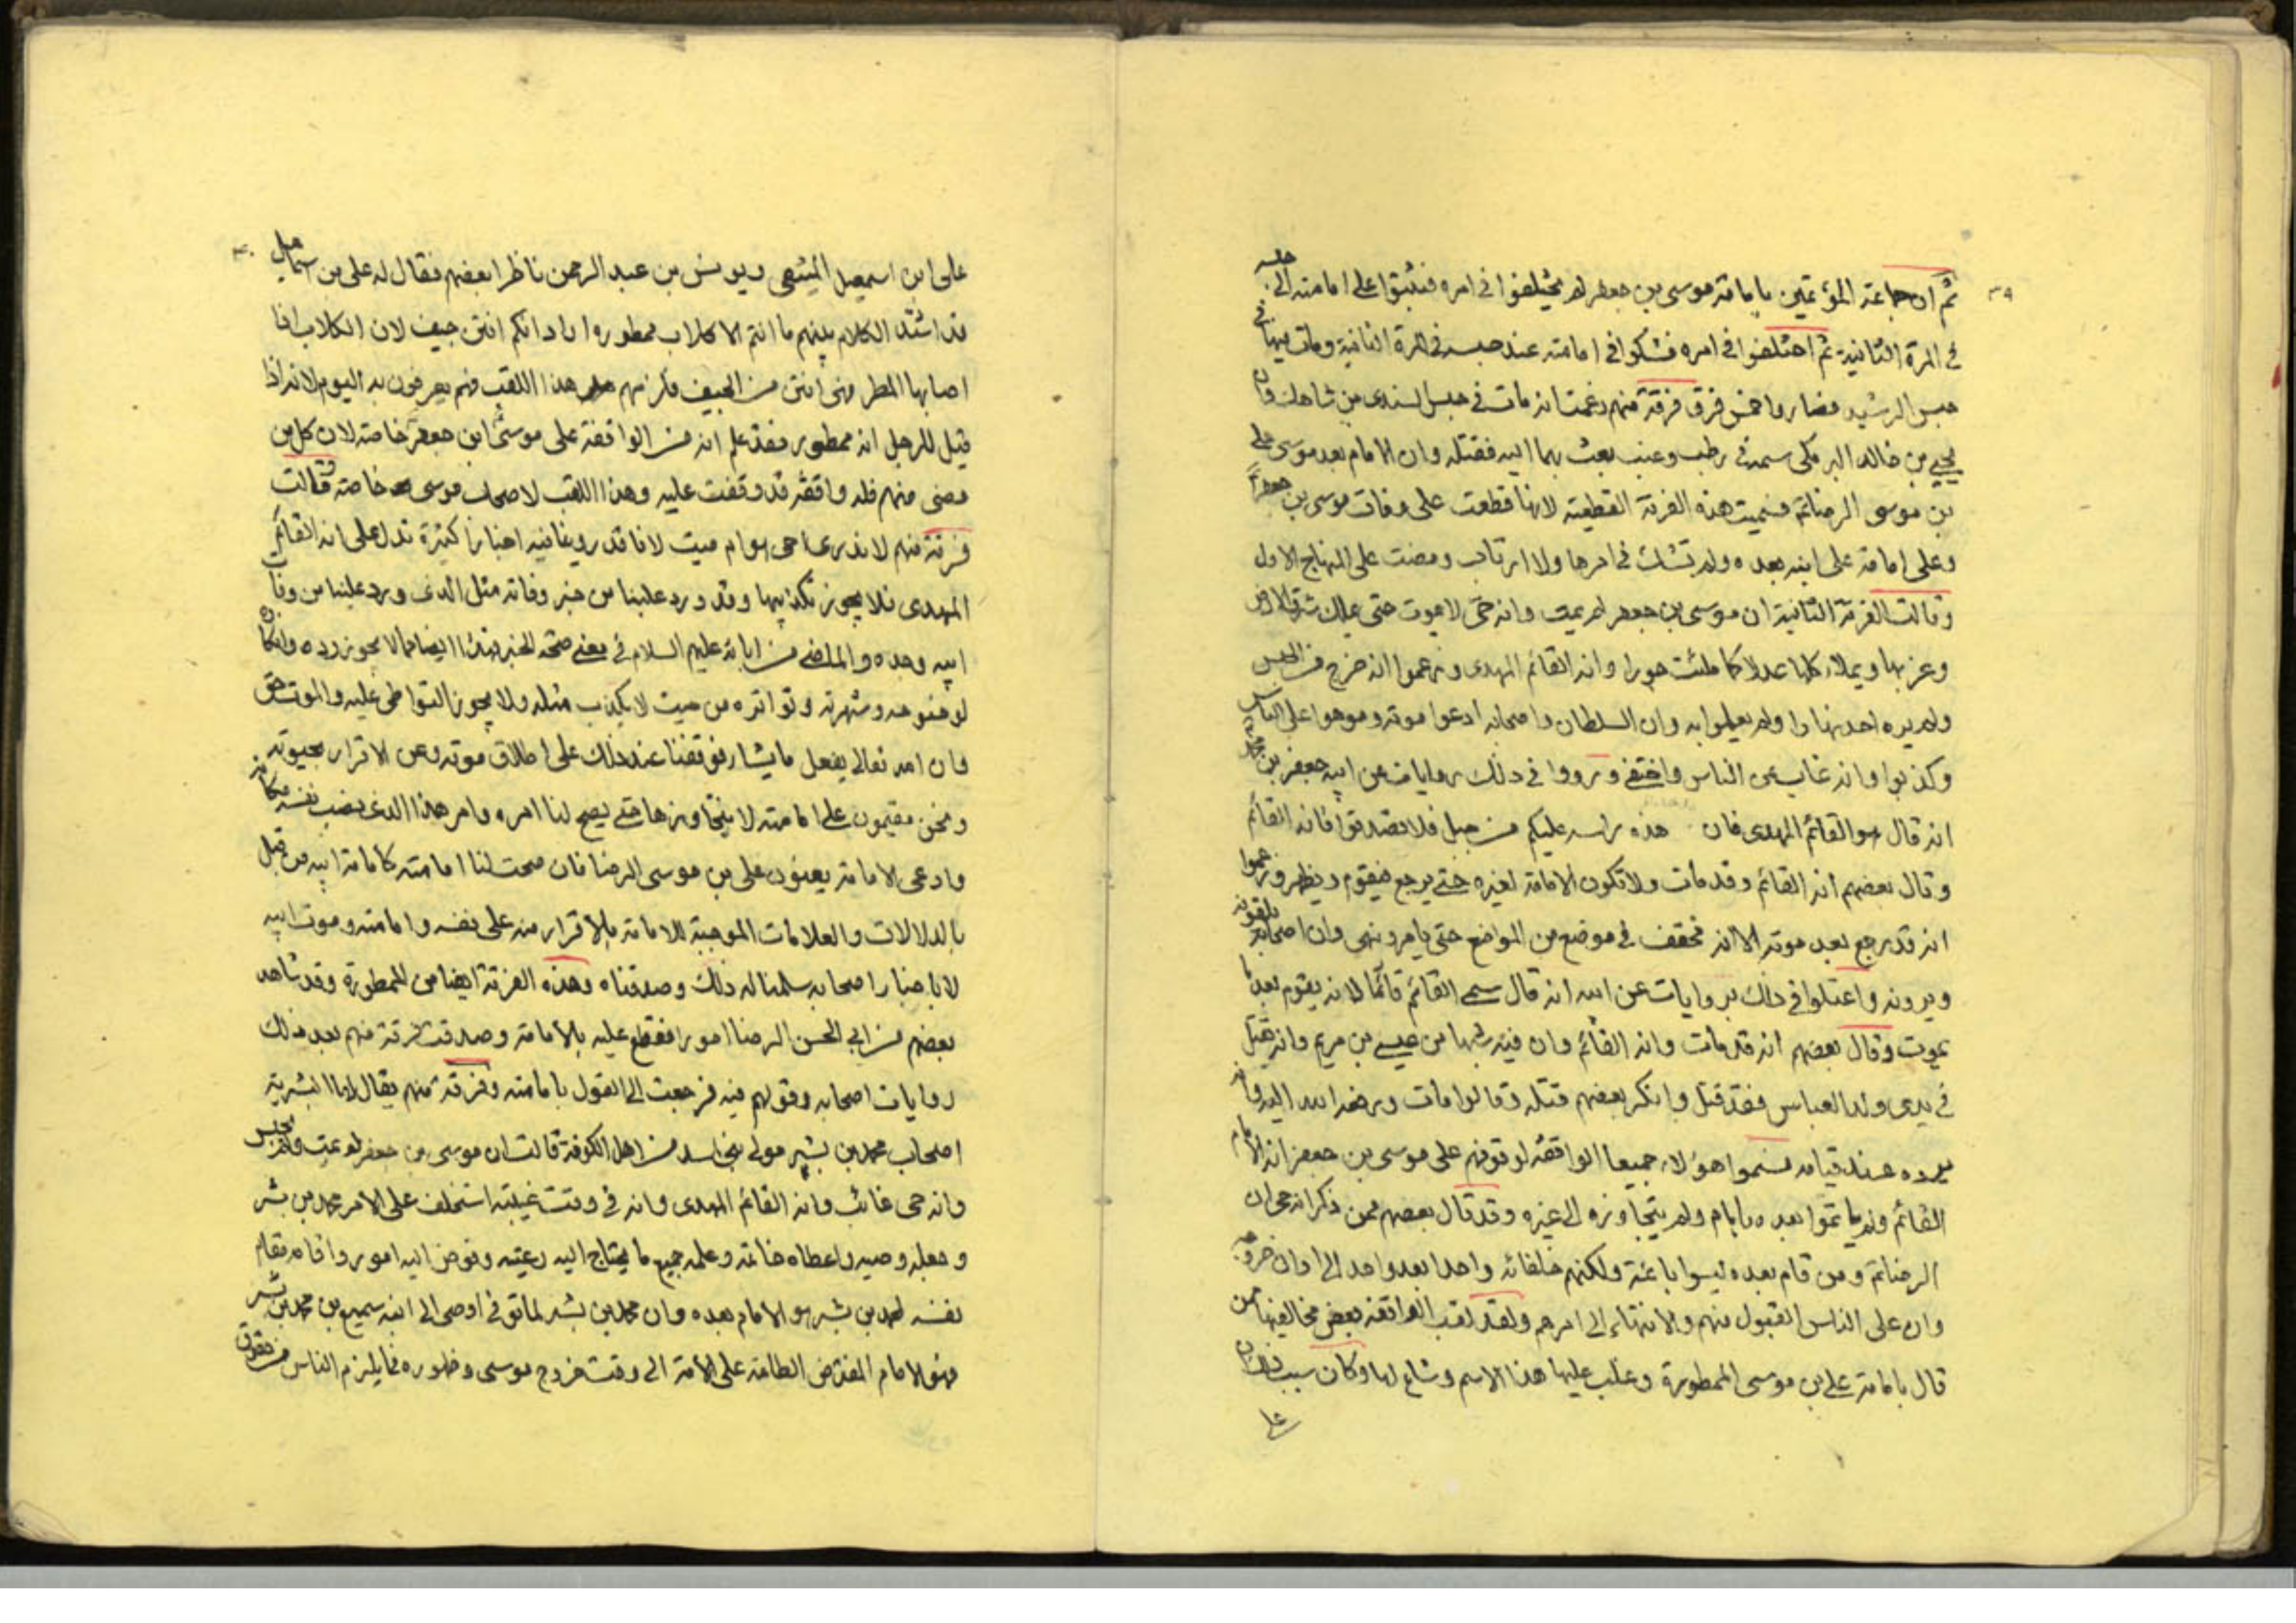 ٣٩
ثم ان جماعة المؤتمين بامامة موسى بن جعفر لم يختلفوا في امره فثبتوا على امامته الى حبسه
في المرة الثانية ثم اختلفوا في امره فشكوا في امامته عند حبسه في المرة الثانية ومات فيها في
حبس الرشيد فصاروا خمس فرق فرقة منهم زعمت انه مات في حبس السندى بن شاهك وان
يحيى بن خالد البرمكى سمه في رطب وعنب بعث بهما اليه فقتله وان الامام بعد موسى على
بن موسى الرضا فسميت هذه الفرقة القطعية لانها قطعت على وفات موسى بن جعفر
وعلى امامة على ابنه بعده ولم تشك في امرها ولا ارتاب ومضت على المنهاج الاول
وقالت الفرقة الثانية ان موسى بن جعفر لم يمت وانه حى لا يموت حتى يملك شرق الارض
وغربها ويملاء كلها عدلا كما ملئت جورا وانه القائم المهدى وزعموا انه خرج من الحبس
ولم يره احد نهارا ولم يعلموا به وان السلطان واصحابه ادعوا موته وموهوا على الناس
وكذبوا وانه غاب عن الناس واختفى ورووا في ذلك روايات عن ابيه جعفر بن محمد
انه قال هو القائم المهدى فان هذه راسه عليكم من جبل فلا تصدقوا فانه القائم
وقال بعضهم انه القائم وقد مات ولا تكون الامامة لغيره حتى يرجع فيقوم ويظهر وزعموا
انه قد رجع بعد موته الا انه مختف في موضع من المواضع حتى يامر وينهى وان اصحابه يلقونه
ويرونه واعتلوا في ذلك بروايات عن ابيه انه قال سمى القائم قائما لانه يقوم بعد ما
يموت وقال بعضهم انه قد مات وانه القائم وان فيه شبها من عيسى بن مريم وانه قتل
في يدى ولد العباس فقد قتل وانكر بعضهم قتله وقالوا مات ورفعه الله اليه وانه
يرده عند قيامه فسموا هؤلاء جميعا الواقفة لوقوفهم على موسى بن جعفر انه الامام
القائم ولم ياتموا بعده بامام ولم يتجاوزه الى غيره وقد قال بعضهم ممن ذكر انه حى ان
الرضا ومن قام بعده ليسوا بائمة ولكنهم خلفائه واحدا بعد واحد الى اوان خروجه
وان على الناس القبول منهم والانتهاء الى امرهم ولقد لقب الواقفة بعض مخالفيها من
قال بامامة على بن موسى الممطورة وغلب عليها هذا الاسم وشاع لها وكان سبب ذلك ان
على
٤٠
على ابن اسمعيل الميثمى ويونس بن عبد الرحمن ناظرا بعضهم فقال له على بن اسماعيل
قد اشتد الكلام بينهم ما انتم الا كلاب ممطورة اراد انكم انتن جيف لان الكلاب اذا
اصابها المطر فهى انتن من الجيف فلزمهم هذا اللقب فهم يعرفون به اليوم لانه اذا
قيل للرجل انه ممطور فقد علم انه من الواقفة على موسى ابن جعفر خاصة لان كل من
مضى منهم فله واقفة قد وقفت عليه وهذا اللقب لاصحاب موسى خاصة وقالت
فرقة منهم لا ندرى احى هو ام ميت لانا قد روينا فيه اخبارا كثيرة تدل على انه القائم
المهدى فلا يجوز تكذيبها وقد ورد علينا من خبر وفاته مثل الذى ورد علينا من وفاة
ابيه وجده والماضى من ابائه عليهم السلام في معنى صحة الخبر فهذا ايضا مما لا يجوز رده وانكاره
لوضوحه وشهرته وتواتره من حيث لا يكذب مثله ولا يجوز التواطى عليه والموت حق
وان الله تعالى يفعل ما يشاء فوقفنا عند ذلك على اطلاق موته وعن الاقرار بحيوته
ونحن مقيمون على امامته لا نتجاوزها حتى يصح لنا امره وامر هذا الذى نصب نفسه مكانه
وادعى الامامة يعنون على بن موسى الرضا فان صحت لنا امامته كامامة ابيه من قبل
بالدلالات والعلامات الموجبة للامامة بالاقرار منه على نفسه وامامته وموت ابيه
لا باخبار اصحابه سلمنا له ذلك وصدقناه وهذه الفرقة ايضا من الممطورة وقد شاهد
بعضهم من ابي الحسن الرضا امورا فقطع عليه بالامامة وصدقت فرقة منهم بعد ذلك
روايات اصحابه وقولهم فيه فرجعت الى القول بامامته وفرقة منهم يقال لها البشرية
اصحاب محمد بن بشير مولى بنى اسد من اهل الكوفة قالت ان موسى بن جعفر لم يمت ولم يحبس
وانه حى غائب وانه القائم المهدى وانه في وقت غيبته استخلف على الامر محمد بن بشر
وجعله وصيه واعطاه خاتمه وعلمه جميع ما يحتاج اليه رعيته وفوض اليه امور واقامه مقام
نفسه فمحمد بن بشر هو الامام بعده وان محمد بن بشر لما توفى اوصى الى ابنه سميع بن محمد بن بشر
فهو الامام المفترض الطاعة على الامة الى وقت خروج موسى وظهوره فما يلزم الناس من حقوق